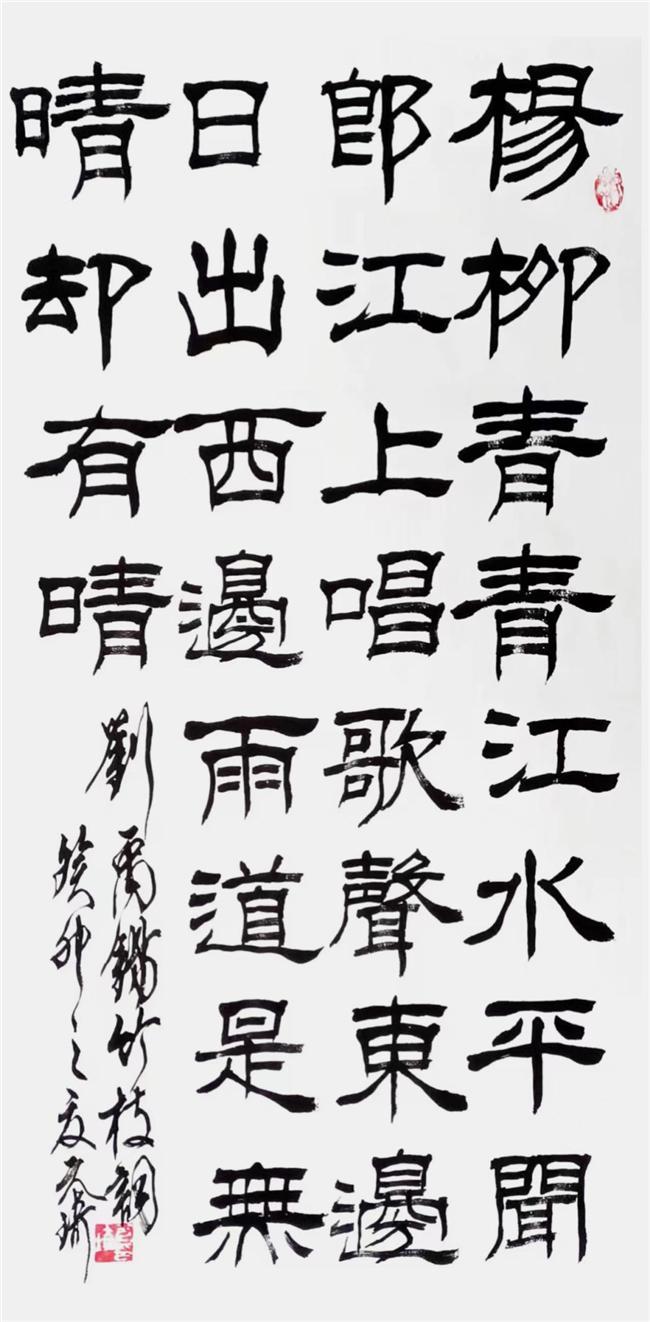 楊柳青青江水平聞
郎江上唱歌聲東邊
日出西邊雨道是無
晴却有晴
劉禹錫竹枝詞
癸卯之夏